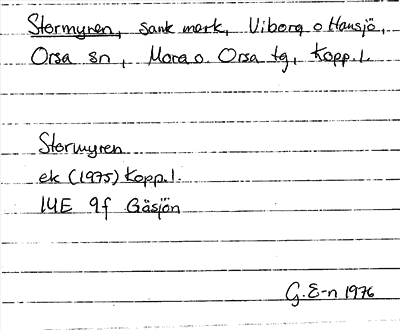 Stormyren, sank mark, Viborg o Hansjö,
Orsa sn, Mora o. Orsa tg, Kopp. l.
Stormyren
ek (1975) Kopp. l.
14E 9f Gåsjön
G. E-n 1976